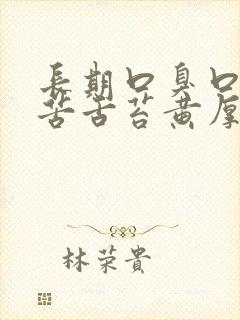 長期口臭口
苦舌苔黄厚
林荣貴